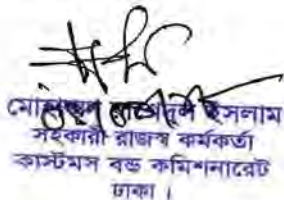 মোহাম্মদ রাশেদুল ইসলাম
সহকারী রাজস্ব কর্মকর্তা
কাস্টমস বন্ড কমিশনারেট
ঢাকা ।